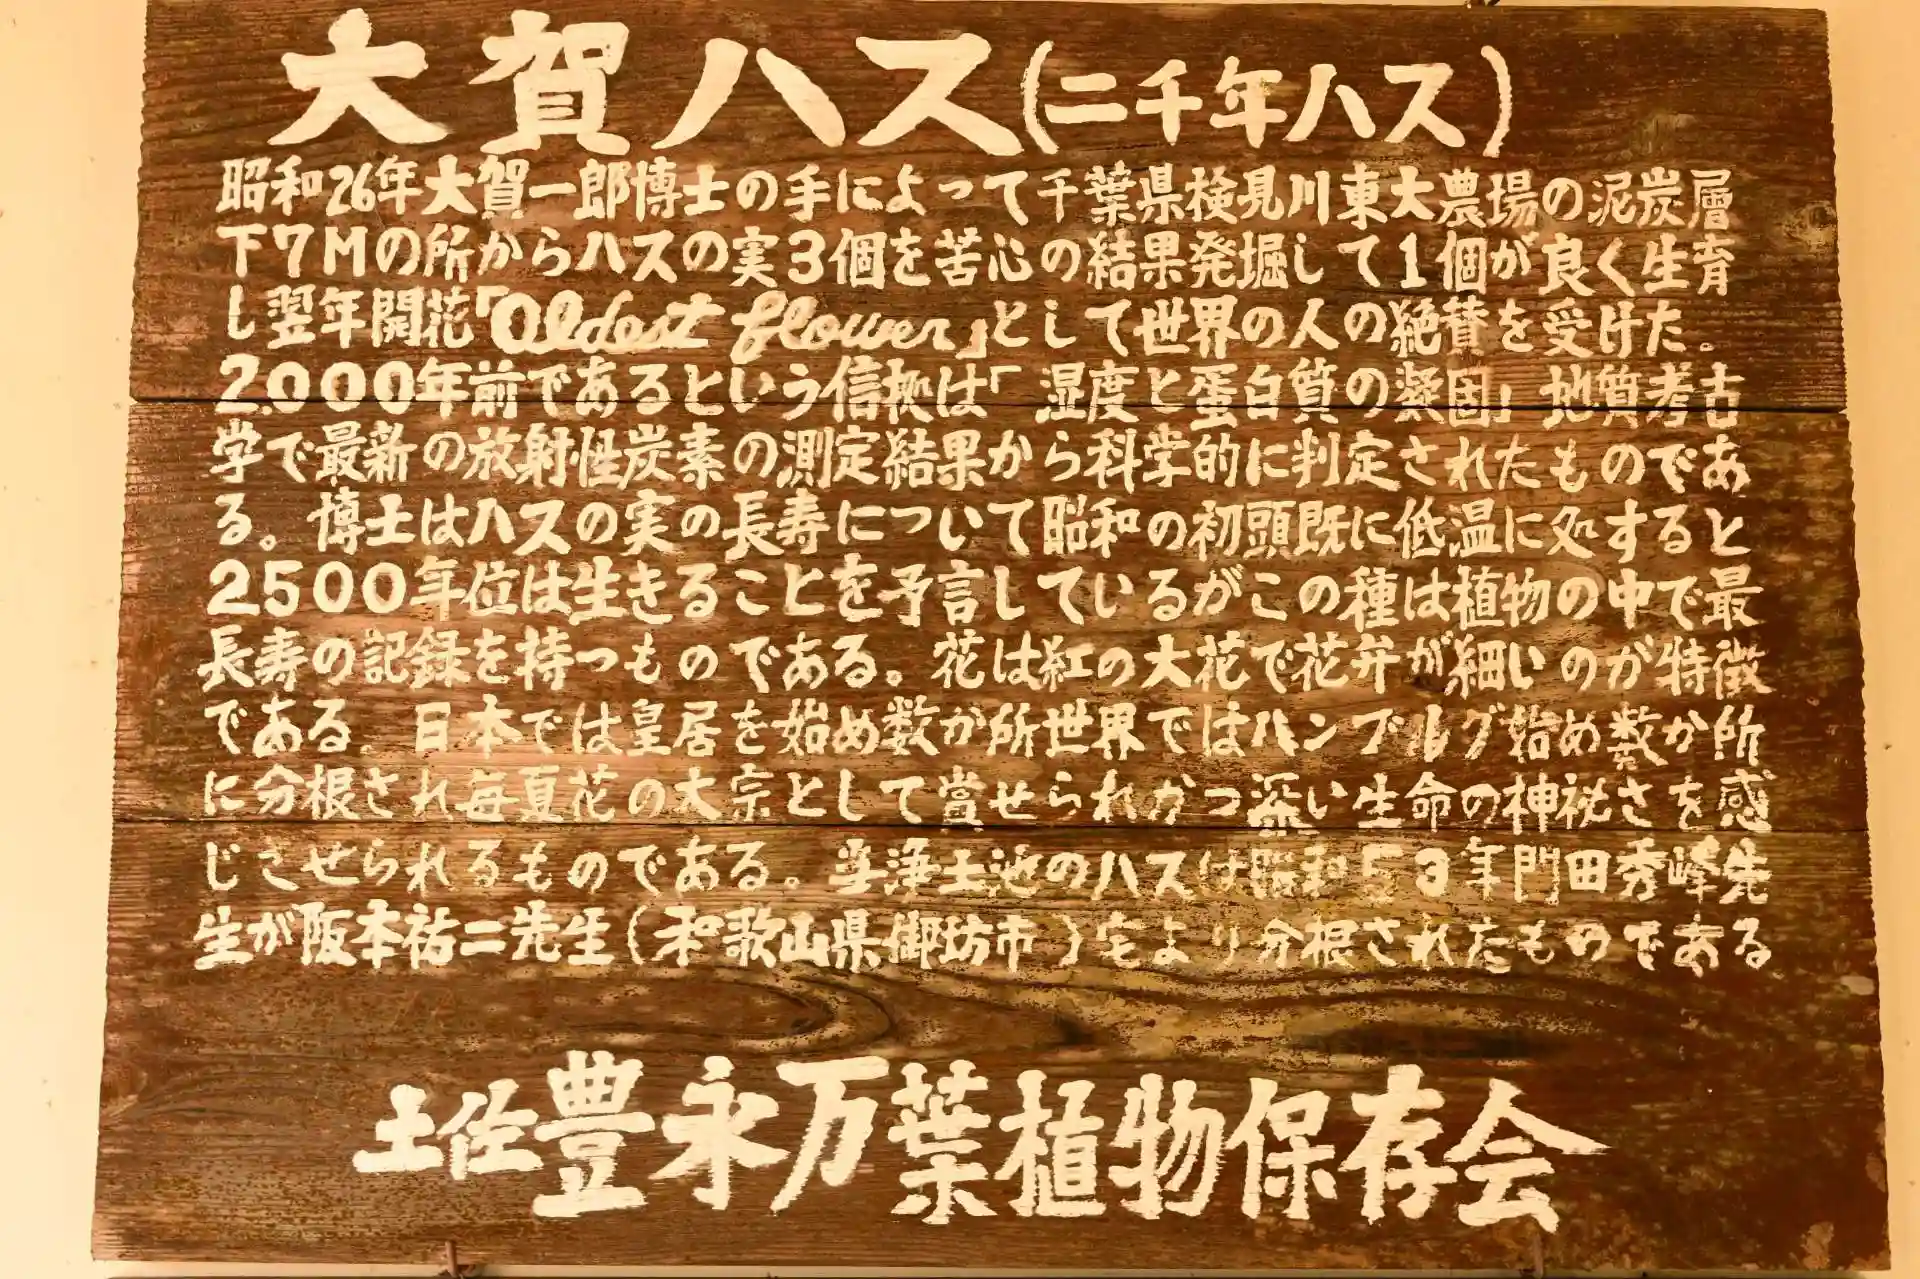 大賀ハス(二千年ハス)
昭和26年大賀一郎博士の手によって千葉県検見川東大農場の泥炭層
下7Mの所からハスの実3個を苦心の結果発掘して1個が良く生育
し翌年開花「Oldest flower」として世界の人の絶賛を受けた。
2.000年前であるという信拠は「湿度と蛋白質の凝固」地質考古
学で最新の放射性炭素の測定結果から科学的に判定されたものであ
る。博士はハスの実の長寿について昭和の初頭既に低温に処すると
2500年位は生きることを予言しているがこの種は植物の中で最
長寿の記録を持つものである。花は紅の大花で花弁が細いのが特徴
である。日本では皇居を始め数か所世界ではハンブルグ始め数か所
に分根され毎夏花の大宗として賞せられかつ深い生命の神祕さを感
じさせられるものである。当浄土池のハスは昭和53年門田秀峰先
生が阪本祐二先生(和歌山県御坊市)宅より分根されたものである
土佐豊永万葉植物保存会